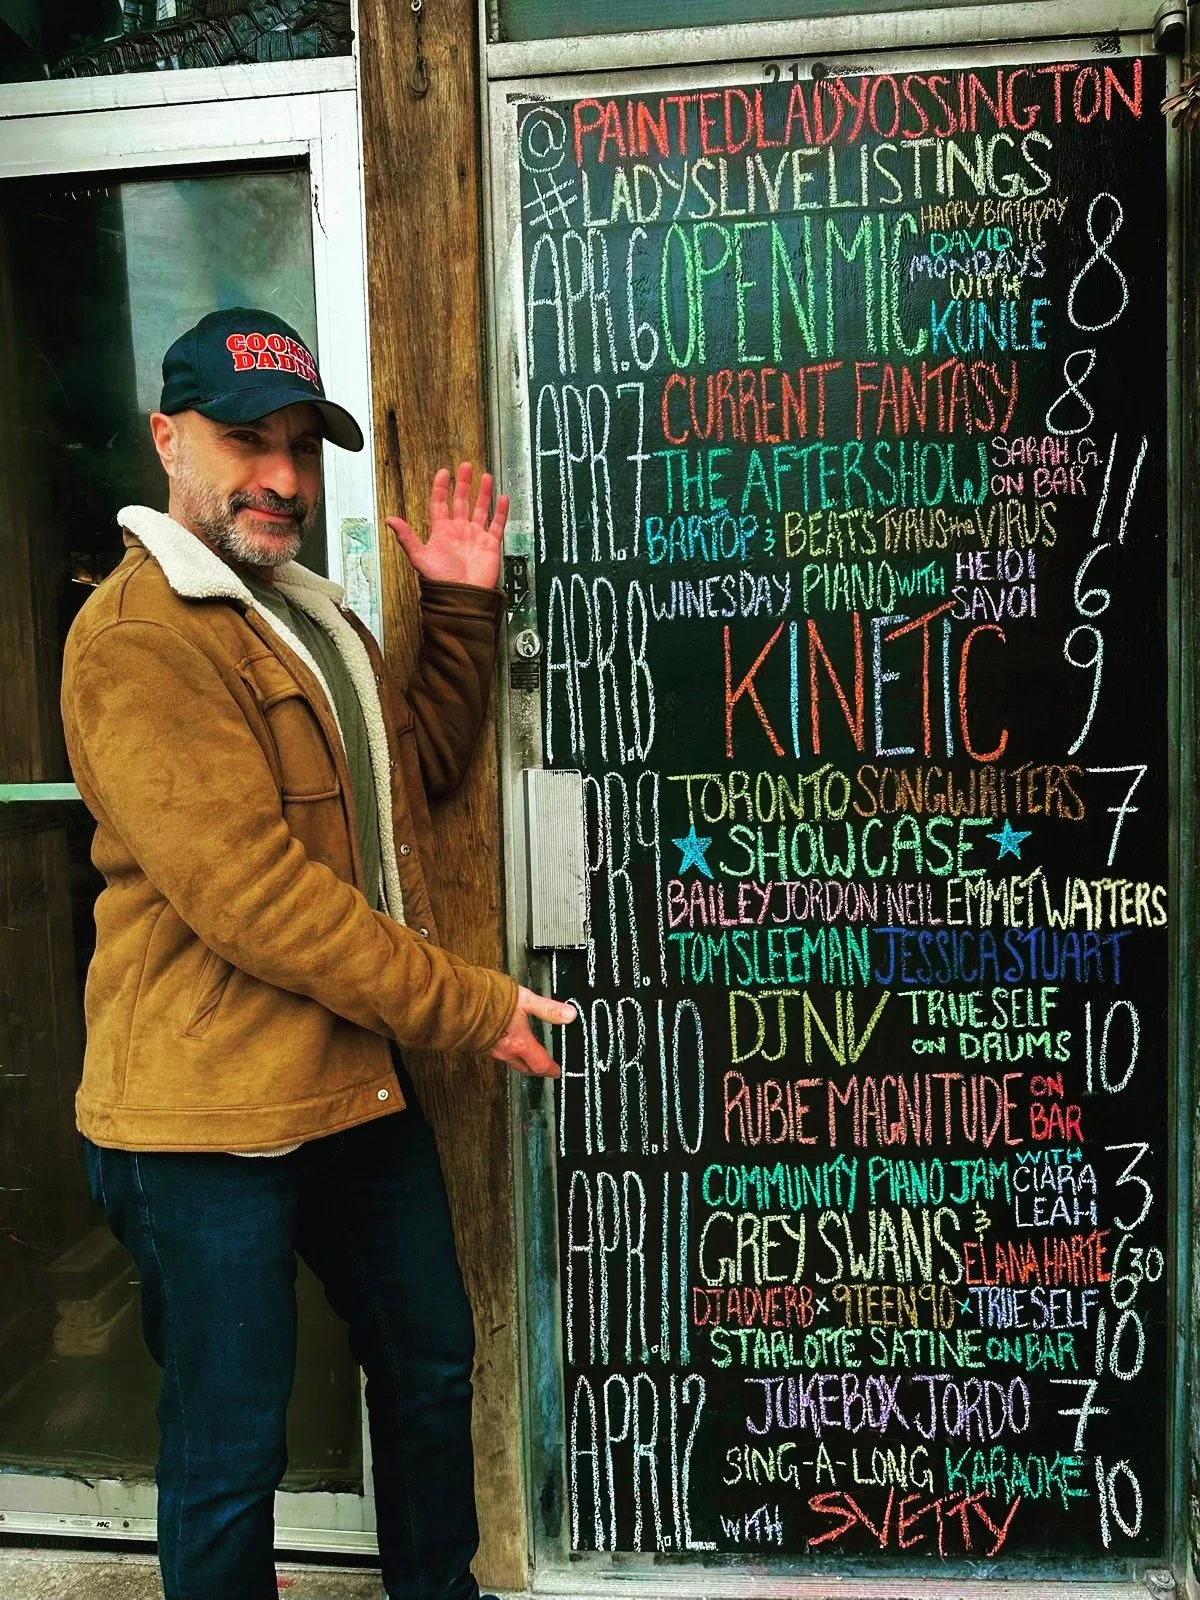 218
@PAINTEDLADYOSSINGTON
#LADYSLIVELISTINGS
APR.6 OPEN MIC HAPPY BIRTHDAY DAVID!! 8
MONDAYS
WITH
KUNLE
APR.7 CURRENT FANTASY 8
THE AFTERSHOW SARAH.G. ON BAR 11
BARTOP & BEATS TYRUS THE VIRUS
APR.8 WINESDAY PIANO WITH HEIDI SAVOI 6
KINETIC 9
APR.9 TORONTO SONGWRITERS 7
SHOWCASE
BAILEY JORDON·NEIL EMMET WATTERS
TOM SLEEMAN JESSICA STUART
APR.10 DJ NV TRUESELF ON DRUMS 10
RUBIE MAGNITUDE ON BAR
APR.11 COMMUNITY PIANO JAM WITH CIARA LEAH 3
GREY SWANS & ELANA HARTE 630
DJ ADVERB x 9TEEN90 x TRUESELF 10
STARLOTTE SATINE ON BAR
APR.12 JUKEBOX JORDO 7
SING-A-LONG KARAOKE 10
WITH SVETTY
DADD